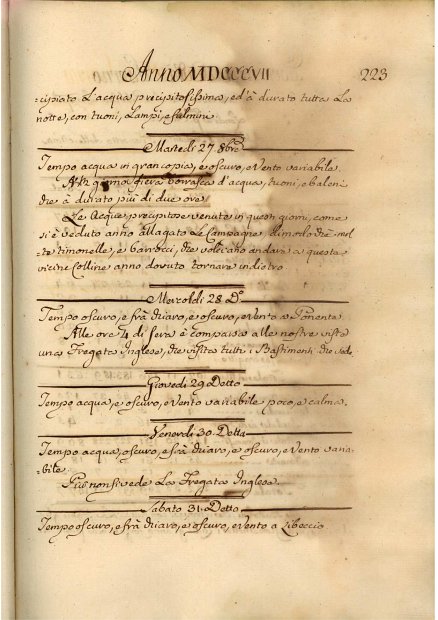 Anno MDCCCVII 223
=cipiato L'acqua precipitosissima, ed'à durato tutta La
notte, con tuoni, Lampi, e fulmini
Martedi 27. 8bre
Tempo acqua in gran copia, e oscuro, e Vento variabile.
fiera borrasca d'acqua, tuoni, e baleni
che à durato più di due ore.
Le Acque precipitose venute in questi giorni, come
si è veduto anno allagato Le Campagne, dimodo che mol=
=te timonelle, e barrocci, che volevano andare a queste
vicine Colline anno dovuto tornare indietro.
Mercoldi 28 Do.
Tempo oscuro, e frà chiaro, e oscuro, e vento a Ponente
Alle ore 4 di sera è comparsa alle nostre viste
una Fregata Inglese, che visita tutti i Bastimenti che vede
Giovedi 29 Detto
Tempo acqua, e oscuro, e Vento variabile poco, e calma.
Venerdi 30. Detto
Tempo acqua, oscuro, e frà chiaro, e oscuro, e Vento varia=
=bile.
Più non si vede La Fregata Inglese.
Sabato 31. Detto
Tempo oscuro, e frà chiaro, e oscuro, e Vento a Libeccio